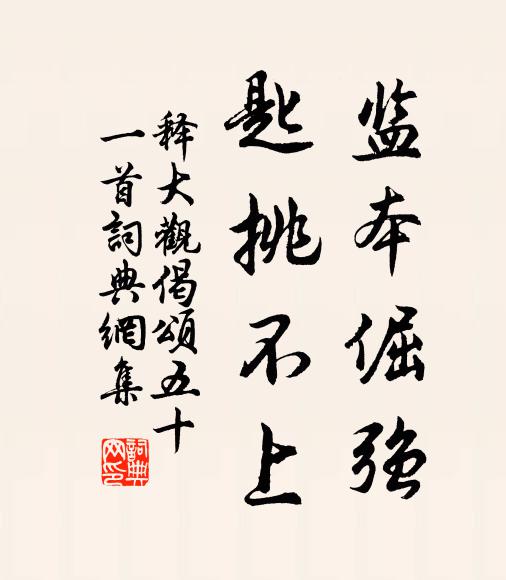 监本倔强
匙挑不上
释大觀偈頌五十
一首詞典網集
詞典网印